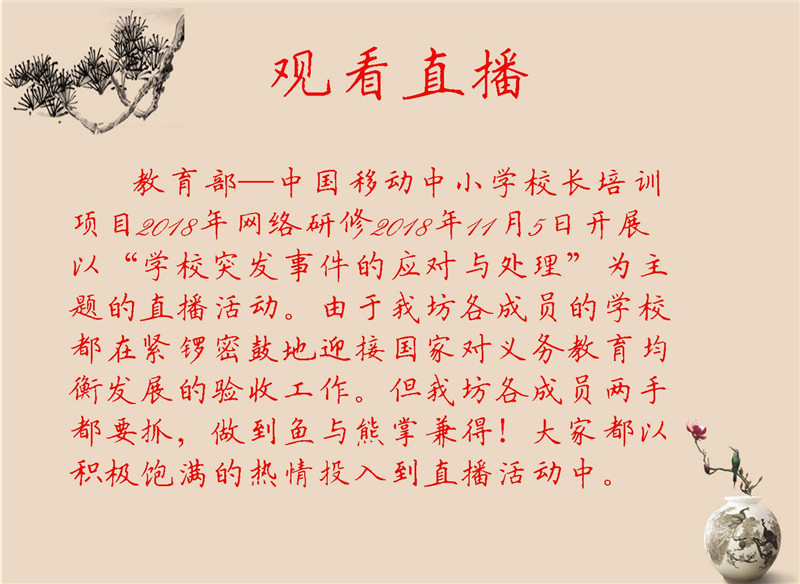 观看直播
教育部—中国移动中小学校长培训
项目2018年网络研修,2018年11月5日开展
以“学校突发事件的应对与处理”为主
题的直播活动。由于我坊各成员的学校
都在紧锣密鼓地迎接国家对义务教育均
衡发展的验收工作。但我坊各成员两手
都要抓，做到鱼与熊掌兼得！大家都以
积极饱满的热情投入到直播活动中。